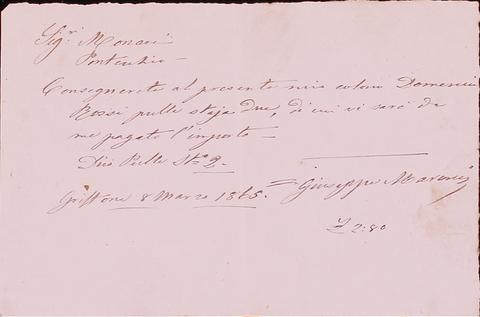 Sig.r Monari
Pontecchio –
Consegnerete al presente mio colono Domenico
Rossi pulle staja due, di cui vi sarà da
me pagato l'importo –
Dico Pulle St.a 2. –
Griffone 8 Marzo 1865. = Giuseppe
£ 2:80